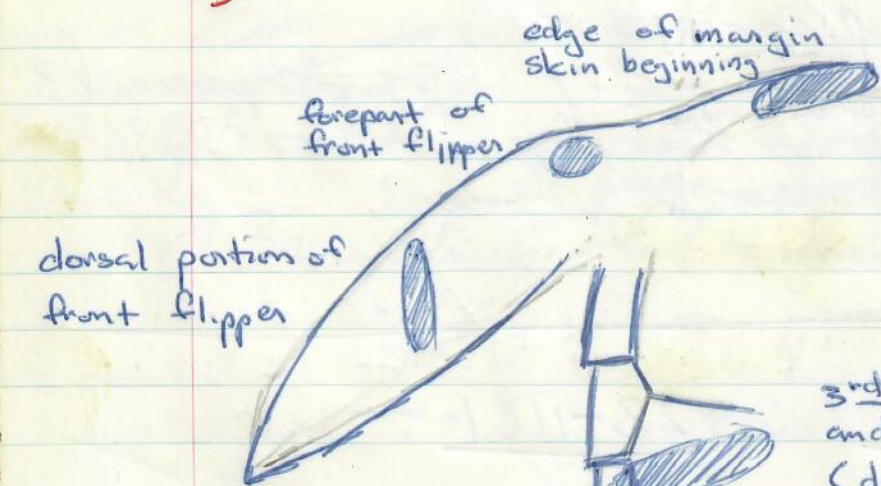 edge of margin
skin beginning
forepart of
front flipper
dorsal portion of
front flipper
3rd
and
(d